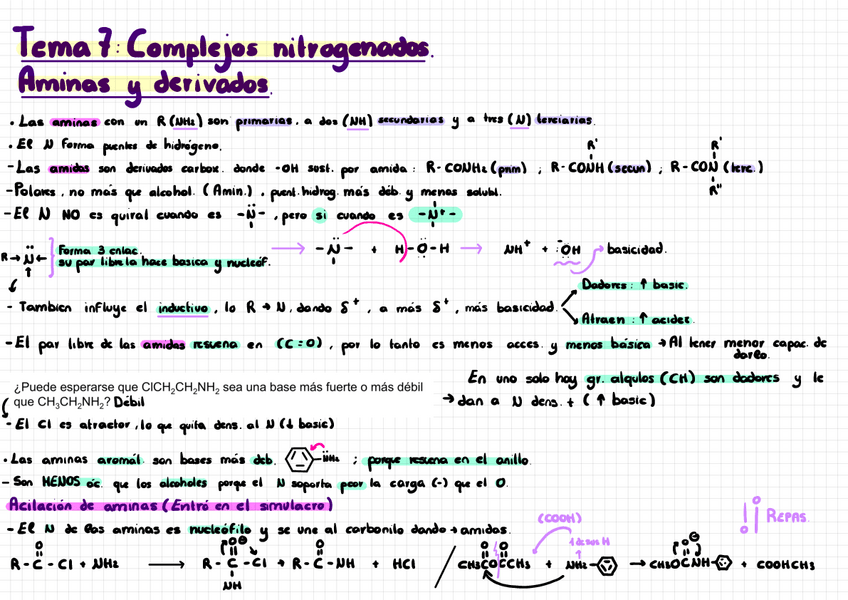 Tema 7: Complejos nitrogenados.
Aminas y derivados.
· Las aminas con un R (NH₂) son primarias, a dos (NH) secundarias y a tres (N) terciarias.
· El N forma puentes de hidrógeno.
- Las amidas son derivados carbox. donde -OH sust. por amida: R-CONH₂ (prim) ; R-CONH (secun) ; R-CON (terc.)
R' R'
R"
- Polares, no más que alcohol. (Amin.), puent. hidrog. más déb. y menos solubl.
- El N NO es quiral cuando es -N̈-, pero si cuando es -N⁺-
R→N̈← Forma 3 enlac. su par libre la hace basica y nucleóf.
-N̈- + H-O-H → NH⁺ + ⁻:OH basicidad.
- Tambien influye el inductivo, lo R → N, dando δ⁺, a más δ⁺, más basicidad.
Dadores: ↑ basic.
Atraen: ↑ acidez.
- El par libre de las amidas resuena en (C=O), por lo tanto es menos acces. y menos básica → Al tener menor capac. de darlo.
¿Puede esperarse que ClCH₂CH₂NH₂ sea una base más fuerte o más débil
que CH₃CH₂NH₂? Débil
- El Cl es atractor, lo que quita dens. al N (↓ basic)
En uno solo hay gr. alqulos (CH) son dadores y le
→ dan a N dens. + (↑ basic)
· Las aminas aromát. son bases más deb. N̈H₂ ; porque resuena en el anillo.
- Son MENOS ác. que los alcoholes porque el N soporta peor la carga (-) que el O.
Acilación de aminas (Entró en el simulacro)
- El N de las aminas es nucleófilo y se une al carbonilo dando → amidas.
(COOH)
¡! REPAS.
R-C-Cl + NH₂ → R-C-Cl → R-C-NH + HCl / CH₃COCCH₃ + NH₂- → CH₃OCNH- + COOHCH₃
O O⊖ O O O O⊖
NH